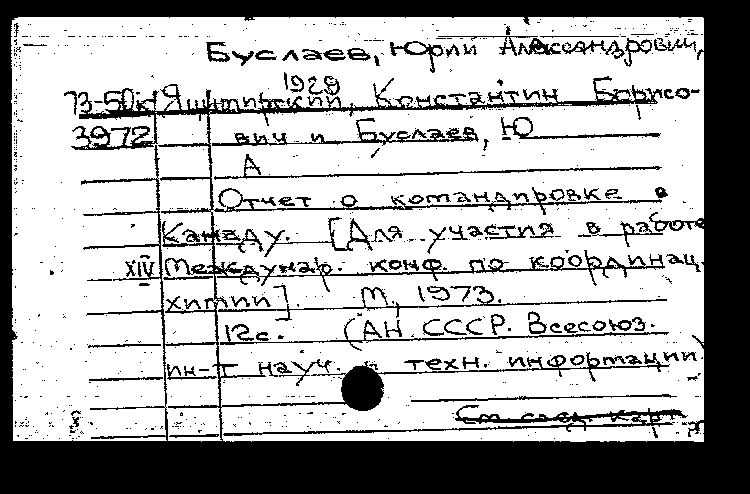 Буслаев, Юрий Александрович,
1929
73-50к Яцимирский, Константин Борисо-
3972 вич и Буслаев, Ю
А
Отчет о командировке в
Канаду. [Для участия в работе
XIV Междунар. конф. по координац.
химии]. М., 1973.
12с. (АН СССР. Всесоюз.
ин-т науч. и техн. информации)
См след. карт